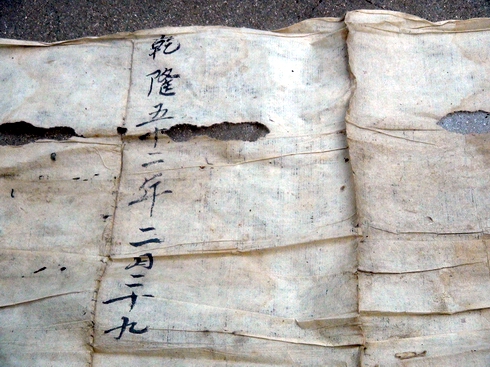 乾隆五十二年二月二十九